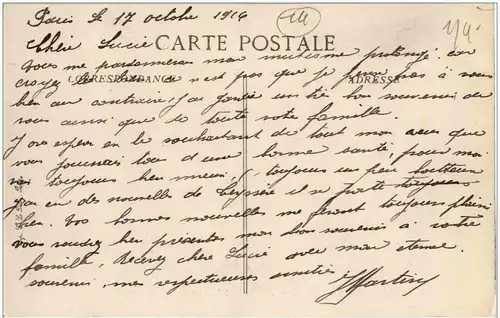 Paris le 17 octobre 1916
Chère Lucie
CARTE POSTALE
Vous me pardonnerez mon mutisme prolongé car
croyez le bien ce n'est pas que je pense pas à vous
CORRESPONDANCE
ADRESSE
bien au contraire, j'ai gardé un très bon souvenir de
vous ainsi que de toute votre famille.
J'ose espérer en le souhaitant de tout mon cœur que
vous jouissez tous d'une bonne santé, pour moi
toujours bien mieux, toujours un peu boiteux
j'ai eu des nouvelle de il se porte toujours
bien. Vos bonnes nouvelles me feront toujours plaisir
vous voudrez bien présenter mon bon souvenir à votre
famille, Recevez chère Lucie avec mon éternel
souvenir, mes respectueuses amitiés
Martin